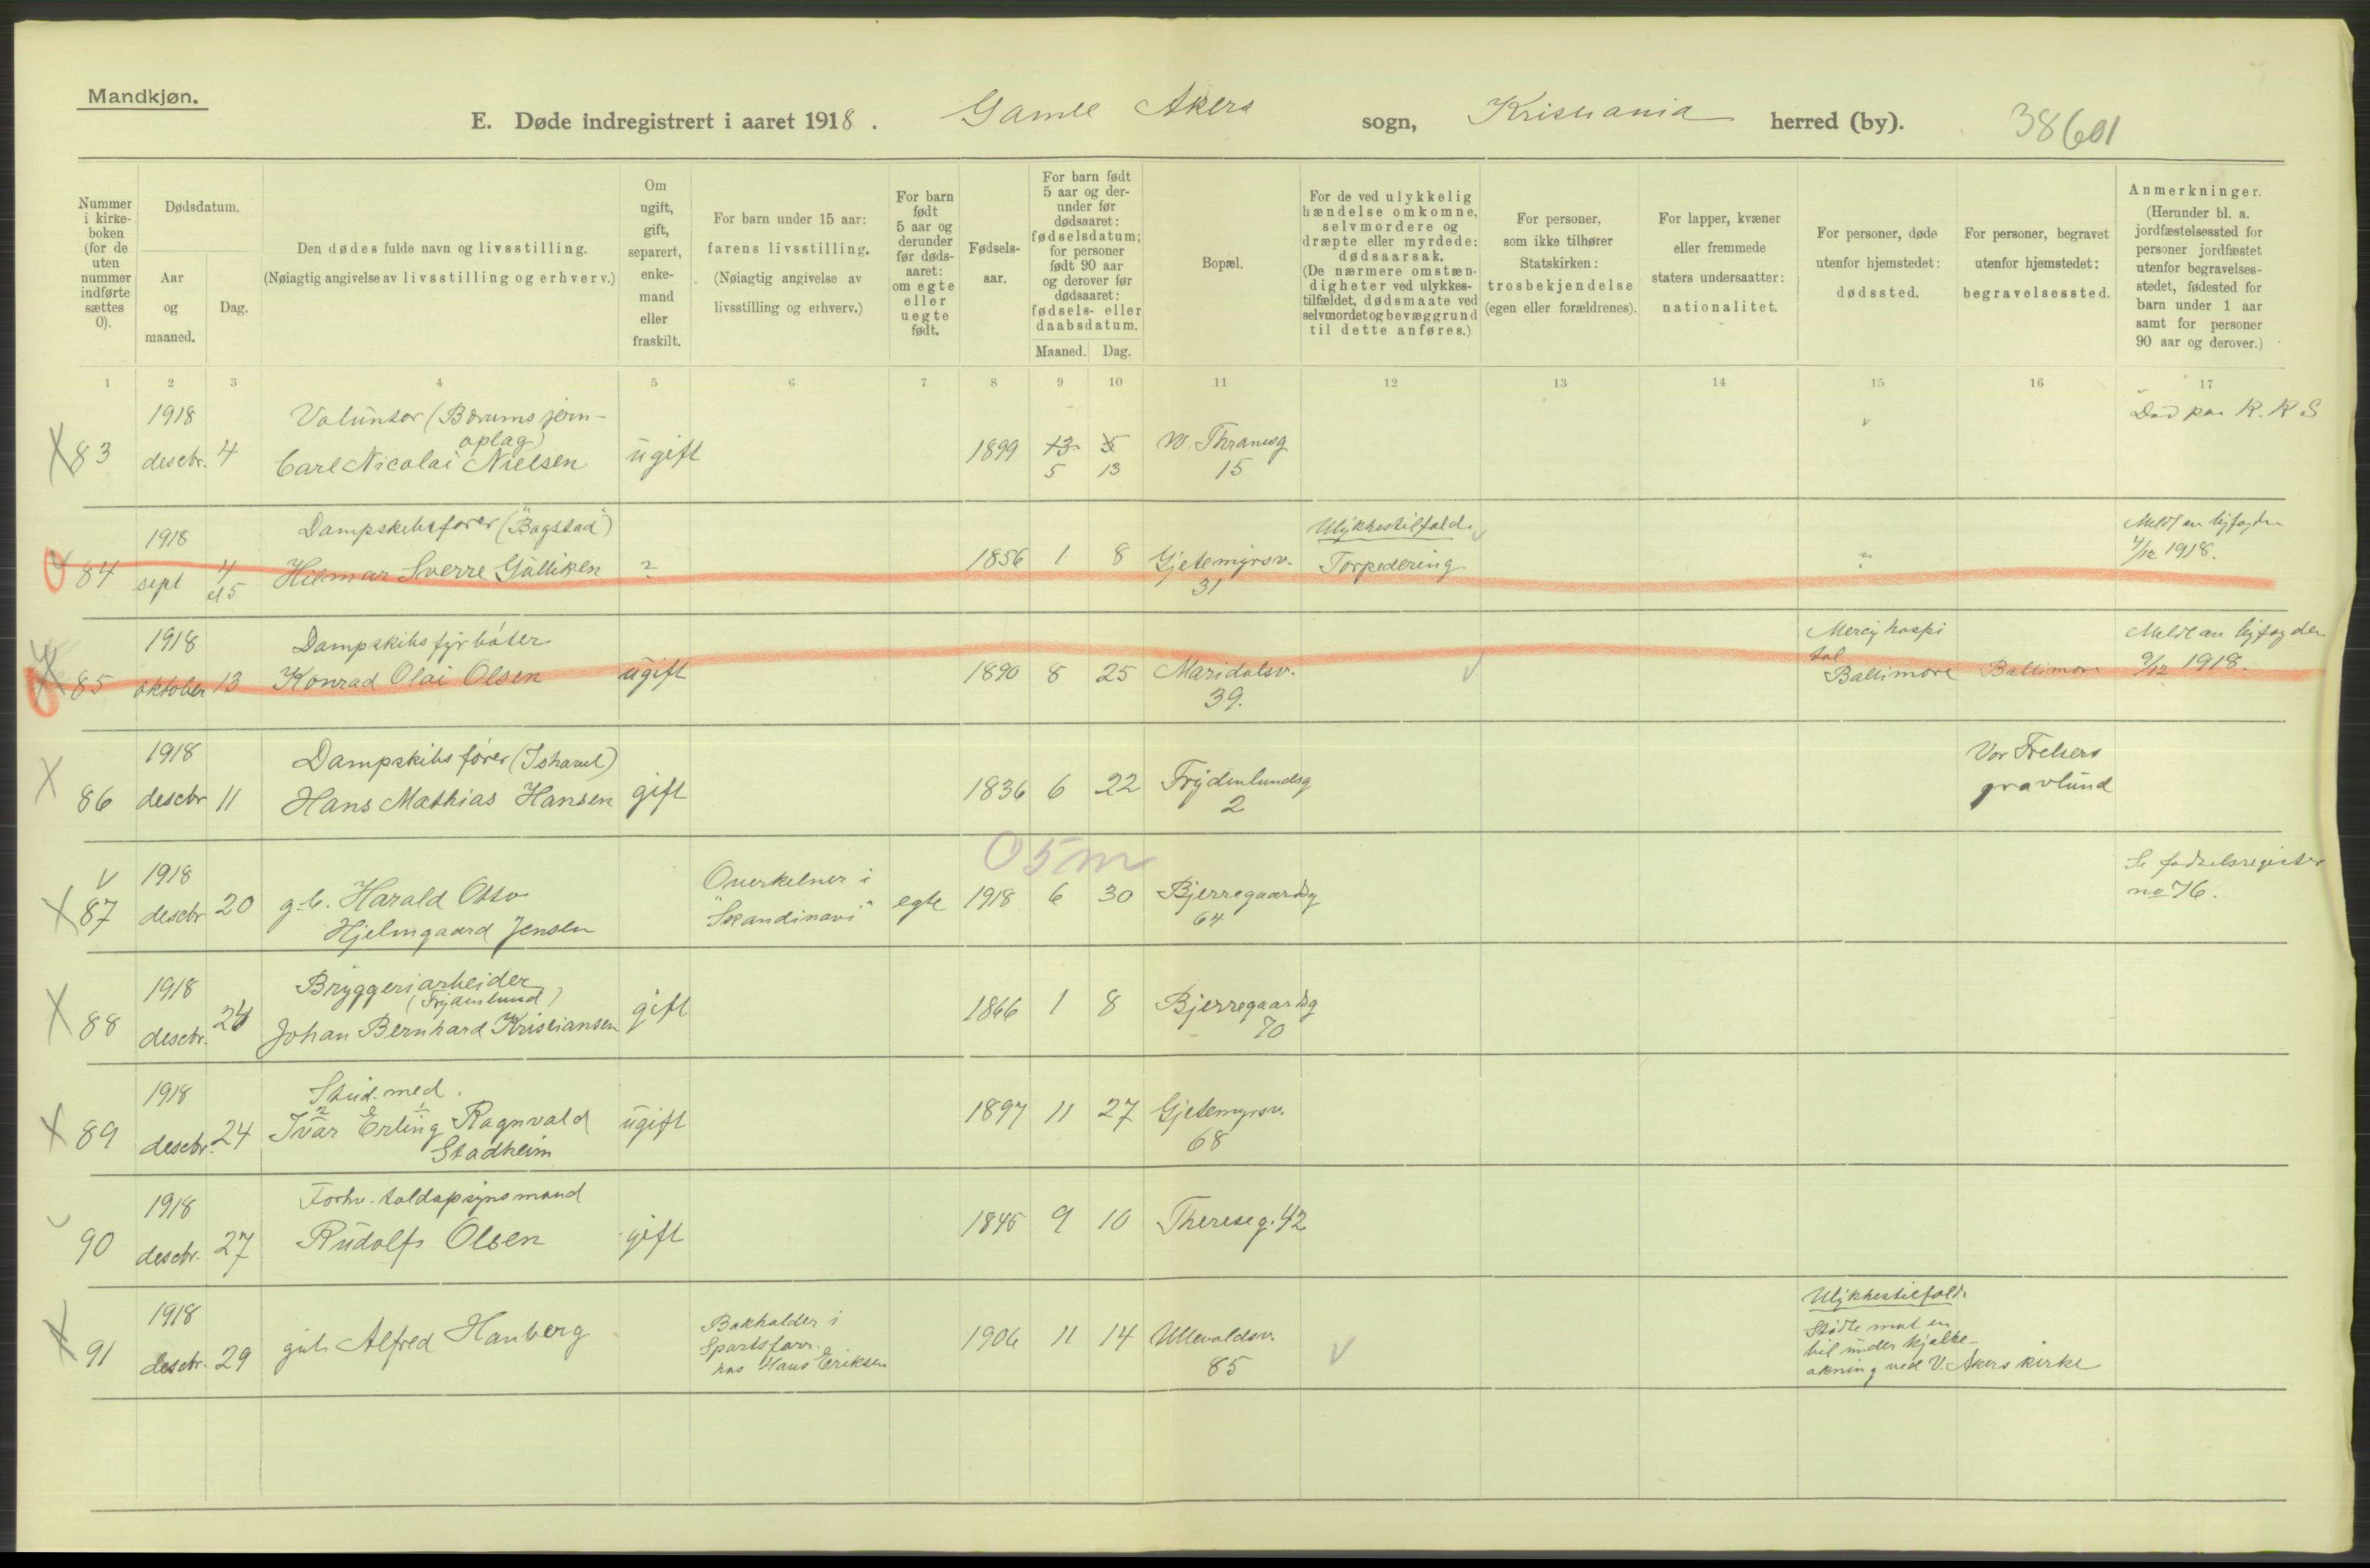 Mandkjøn.
E. Døde indregistrert i aaret 1918. Gamle Akers sogn, Kristiania herred (by). 38601
Nummer i kirke-boken (for de uten nummer indførte sættes 0).
Dødsdatum.
Aar og maaned.
Dag.
Den dødes fulde navn og livsstilling.
(Nøiagtig angivelse av livsstilling og erhverv.)
Om ugift, gift, separert, enke-mand eller fraskilt.
For barn under 15 aar:
farens livsstilling.
(Nøiagtig angivelse av livsstilling og erhverv.)
For barn født 5 aar og derunder før døds-aaret: om egte eller uegte født.
Fødsels-aar.
For barn født 5 aar og der-under før dødsaaret: fødselsdatum; for personer født 90 aar og derover før dødsaaret: fødsels- eller daabsdatum.
Maaned. Dag.
Bopæl.
For de ved ulykkelig hændelse omkomne, selvmordere og dræpte eller myrdede: dødsaarsak.
(De nærmere omstæn-digheter ved ulykkes-tilfældet, dødsmaate ved selvmordet og bevæggrund til dette anføres.)
For personer, som ikke tilhører Statskirken: trosbekjendelse (egen eller forældrenes).
For lapper, kvæner eller fremmede staters undersaatter: nationalitet.
For personer, døde utenfor hjemstedet: dødssted.
For personer, begravet utenfor hjemstedet: begravelsessted.
Anmerkninger.
(Herunder bl. a. jordfæstelsessted for personer jordfæstet utenfor begravelses-stedet, fødested for barn under 1 aar samt for personer 90 aar og derover.)
1 2 3 4 5 6 7 8 9 10 11 12 13 14 15 16 17
1918 Voluntør (Bærums jern-
oplag) Død paa K. K S
83 descbr. 4 Carl Nicolai Nielsen ugift 1899 13 5 W. Thranesg
5 13 15
1918 Dampskibsfører ("Bogstad") Ulykkestilfæld.
84 sept 4 Hilmar Sverre Gulliksen ? 1856 1 8 Gjetemyrsv. Torpedering ? 4/12 1918.
el 5 31
1918 Dampskibsfyrbøter Mercy hospi Meldt av byfogden
85 oktober 13 Konrad Olai Olsen ugift 1890 8 25 Maridalsv. tal Baltimore Baltimore 9/12 1918.
39.
1918 Dampskibsfører (Ishavet) Vor Frelsers
86 descbr 11 Hans Mathias Hansen gift 1836 6 22 Frydenlundsg gravlund
2
05m
1918 Overkelner i Se fødselsregister
87 descbr 20 g.b. Harald Otto "Skandinavi" egte 1918 6 30 Bjerregaardsg no 76.
Hjelmgaard Jensen 64
1918 Bryggeriarbeider
(Frydenlund)
88 descbr. 24 Johan Bernhard Kristiansen gift 1866 1 8 Bjerregaardsg
70
1918 Stud. med.
89 descbr. 24 Ivar Erling Ragnvald ugift 1897 11 27 Gjetemyrsv.
Stadheim 68
1918 Forhv. toldopsynsmand
90 descbr. 27 Rudolf Olsen gift 1845 9 10 Thereseg. 42
1918 Bokholder i Ulykkestilfæld.
91 descbr. 29 gut Alfred Hanberg Sportsforr. 1906 11 14 Ullevoldsv. Stødte mot en
hos Hans Eriksen 85 bil under kjælke-
akning ved V. Akers kirke